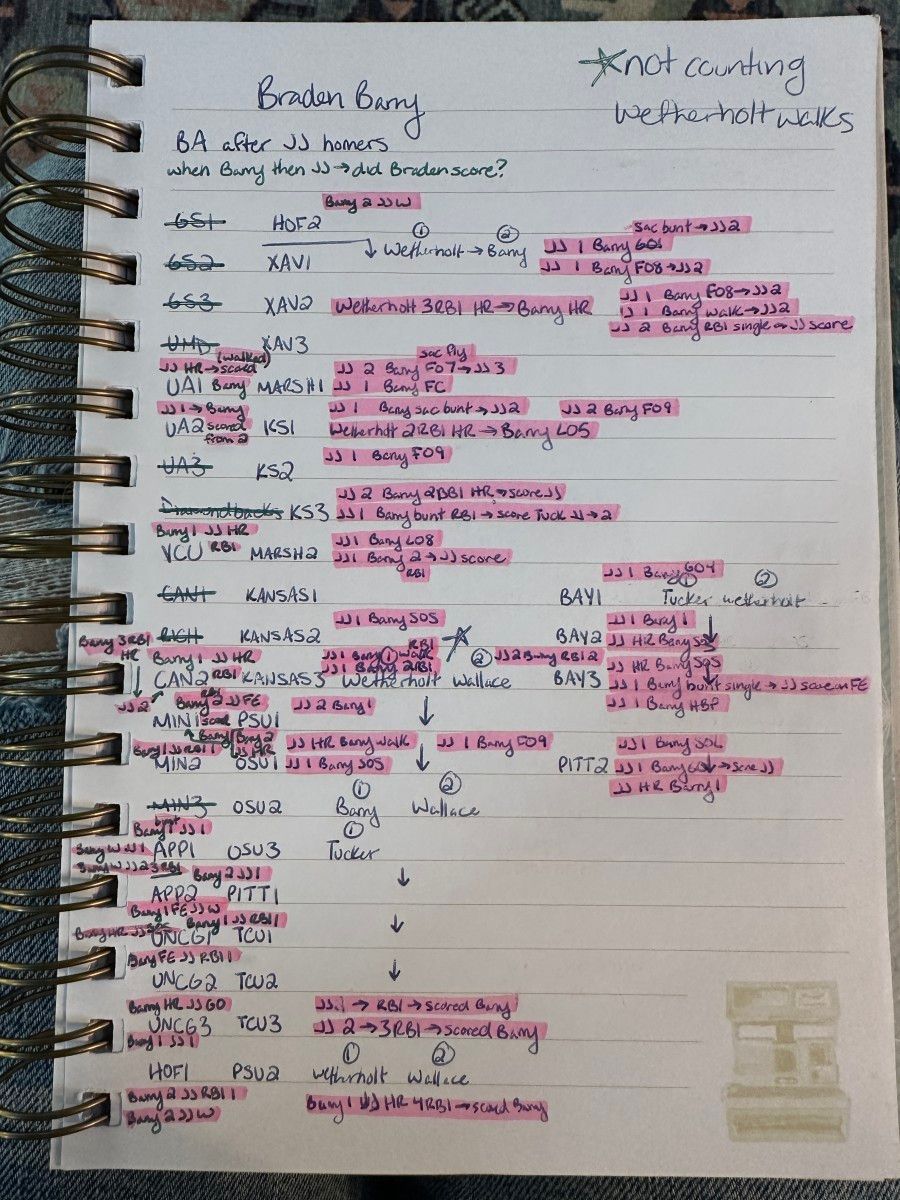 Braden Barry
☆not counting
Wetherholt walks
BA after JJ homers
when Barry then JJ → did Braden score?
Barry 2 JJ W
GS1 HOF2 sac bunt → JJ2
↓ ① Wetherholt → ② Barry JJ 1 Barry GO1
GS2 XAV1 JJ 1 Barry FO8 → JJ2
JJ 1 Barry FO8 → JJ2
GS3 XAV2 Wetherholt 3RBI HR → Barry HR JJ 1 Barry walk → JJ2
JJ 2 Barry RBI single → JJ score
UMD XAV3
(walked) sac fly
JJ HR → scored JJ 2 Barry FO7 → JJ 3
UA1 Barry MARSH1 JJ 1 Barry FC
JJ 1 → Barry JJ 1 Barry sac bunt → JJ2 JJ 2 Barry FO9
UA2 scored from 2 KS1 Wetherholt 2RBI HR → Barry LO5
JJ 1 Barry FO9
UA3 KS2
JJ 2 Barry 2RBI HR → score JJ
Diamondbacks KS3 JJ1 Barry bunt RBI → score Tuck JJ → 2
Barry 1 JJ HR JJ1 Barry LO8
VCU RBI MARSH2 JJ1 Barry 2 → JJ score
RBI JJ 1 Barry GO4
CAN1 KANSAS1 BAY1 ① Tucker ② Wetherholt
JJ 1 Barry SOS JJ 1 Barry 1 ↓
RICH KANSAS2 BAY2 JJ HR Barry
Barry 3RBI HR Barry 1 JJ HR JJ 1 Barry walk RBI ☆
JJ 1 Barry 2RBI JJ2 Barry RBI 2 JJ HR Barry SOS
CAN2 RBI KANSAS3 ① Wetherholt ② Wallace BAY3 JJ 1 Barry bunt single → JJ score on FE
JJ 2 Barry 2 JJ FE JJ 2 Barry 1 JJ 1 Barry HBP
MIN1 PSU1 ↓
Barry 1 JJ RBI 1 Barry 2 JJ HR JJ HR Barry walk ↓ JJ 1 Barry FO9 JJ 1 Barry SOL
MIN2 OSU1 JJ 1 Barry SOS PITT2 JJ 1 Barry → score JJ
JJ HR Barry 1
MIN3 OSU2 ① Barry ② Wallace
Barry bunt 1 JJ 1
Barry W JJ 1 APP1 OSU3 ① Tucker
Barry W JJ 2 3RBI Barry 2 JJ 1
APP2 PITT1 ↓
Barry 1 FE JJ W
Barry HR JJ Barry 1 JJ RBI 1
UNCG1 TCU1 ↓
Barry FE JJ RBI 1
UNCG2 TCU2 ↓
Barry HR JJ GO JJ 1 → RBI → scored Barry
UNCG3 TCU3 JJ 2 → 3RBI → scored Barry
Barry 1 JJ 1
HOF1 PSU2 ① Wetherholt ② Wallace
Barry 2 JJ RBI 1
Barry 1 JJ HR 4RBI → scored Barry
Barry 2 JJ W